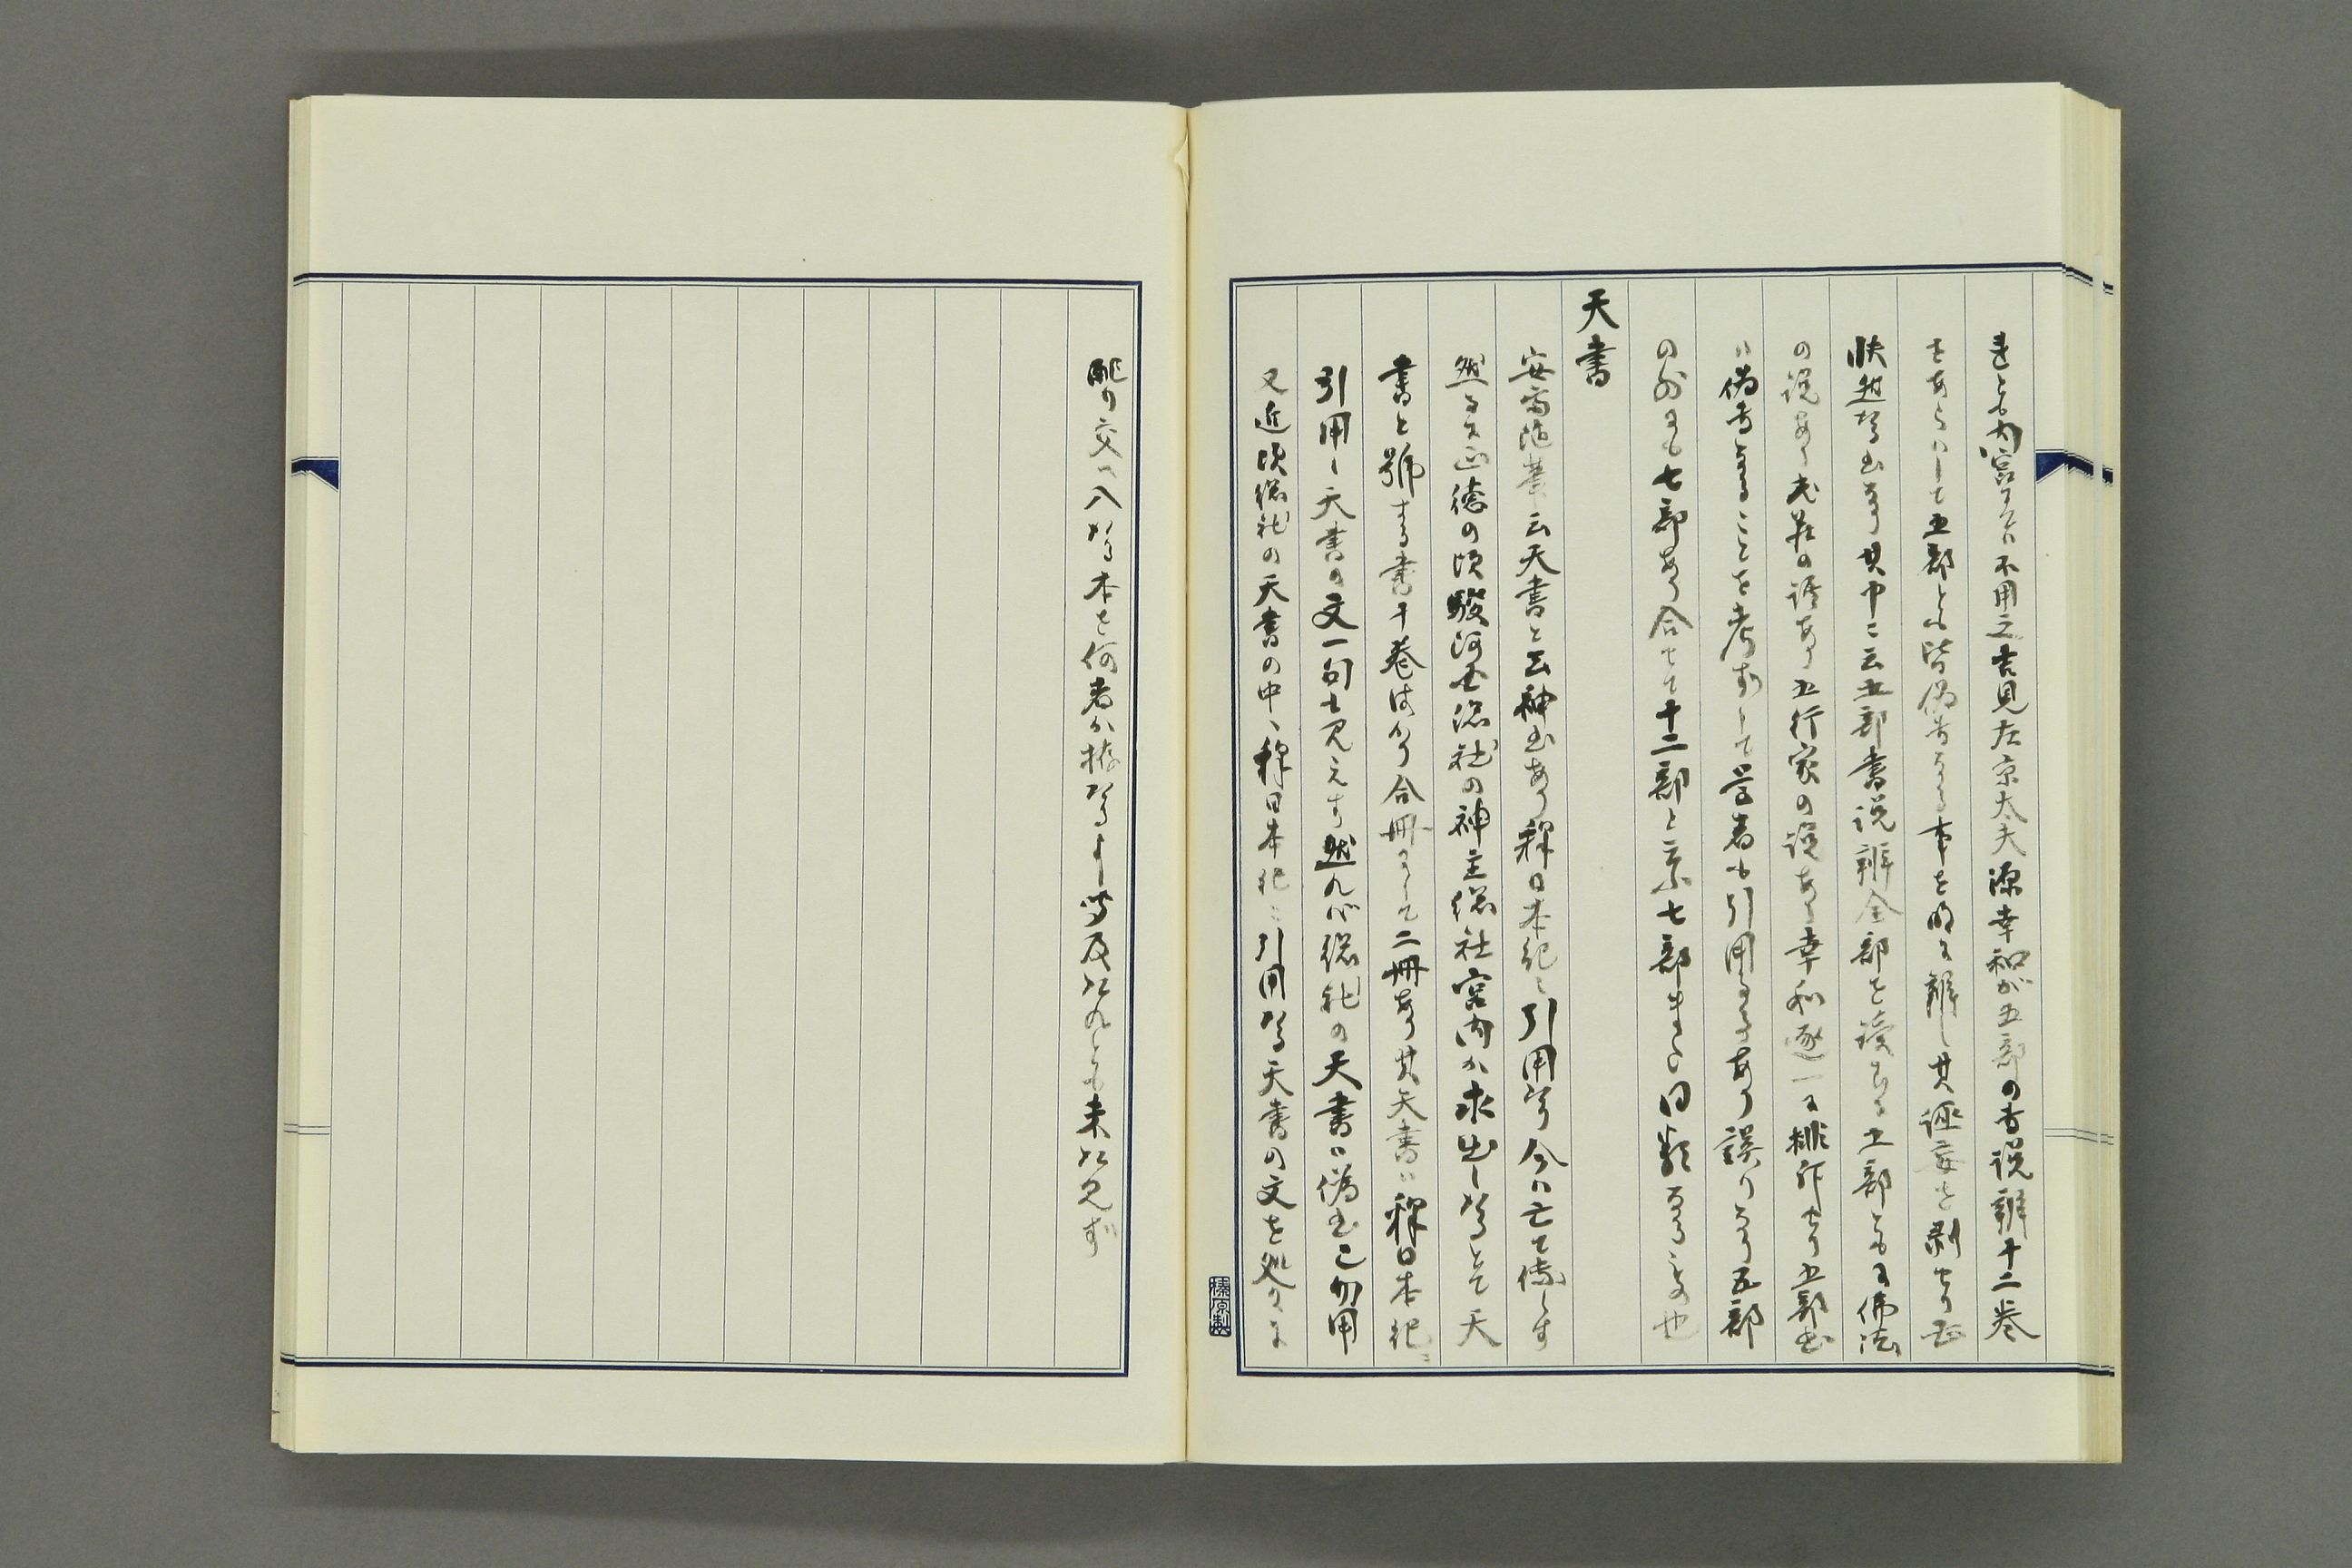 れども内宮にては不用之吉見左京太夫源幸和が五部の書説辨十二巻
をあらはして五部とも皆偽書なる事を明に辨し其誣妄を
快然たる書なり其中に云五部書説辨全部を読むに五部ともに佛法
の説あり老荘の語あり五行家の説あり幸和逐一に排斥せり五部書
は偽書なることを考ずして学者も引用る事あり誤りなり五部
の外にも七部あり合せて十二部と云ふ七部また同類なるもの也
天書
安斎随筆云天書と云神書あり釋日本紀に引用たり今は亡て傳らす
然るに正徳の頃駿河国総社の神主総社宮内が求出したるとて天
書と號する書十巻ばかり合冊にして二冊あり其天書は釋日本紀に
引用し天書の文一句も見えす然れば総社の天書は偽書也勿用
又近頃総社の天書の中へ釋日本紀に引用たる天書の文を処々に
彫り交へ入たる本を何者か拵たるよし聞及たれども未た見ず
榛原製